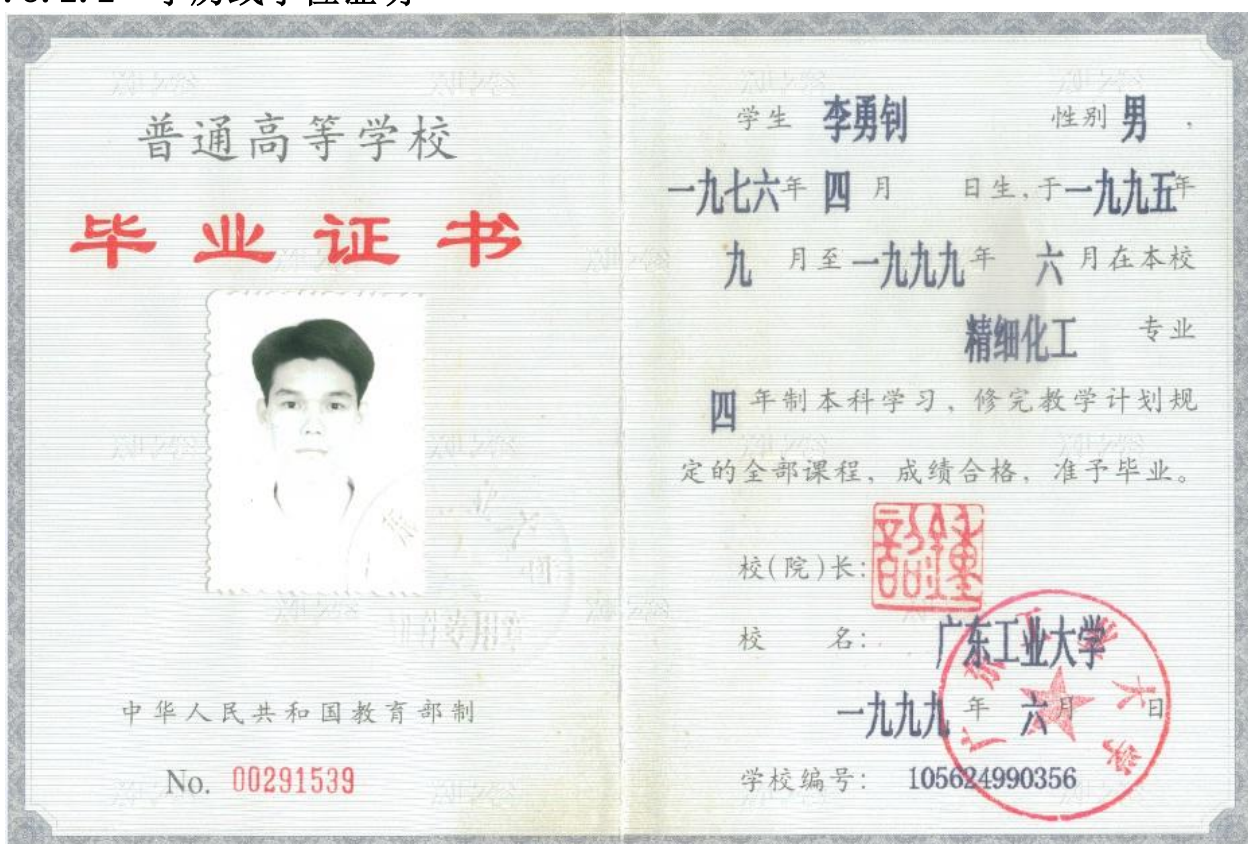 普通高等学校
毕业证书
中华人民共和国教育部制
No. 00291539
学生 李勇钊 性别 男，
一九七六年 四 月 日生，于一九九五年
九 月至一九九九年 六 月在本校
精细化工 专业
四 年制本科学习，修完教学计划规
定的全部课程，成绩合格，准予毕业。
校(院)长:
校 名: 广东工业大学
一九九九 年 六月 日
学校编号: 105624990356
广东工业大学